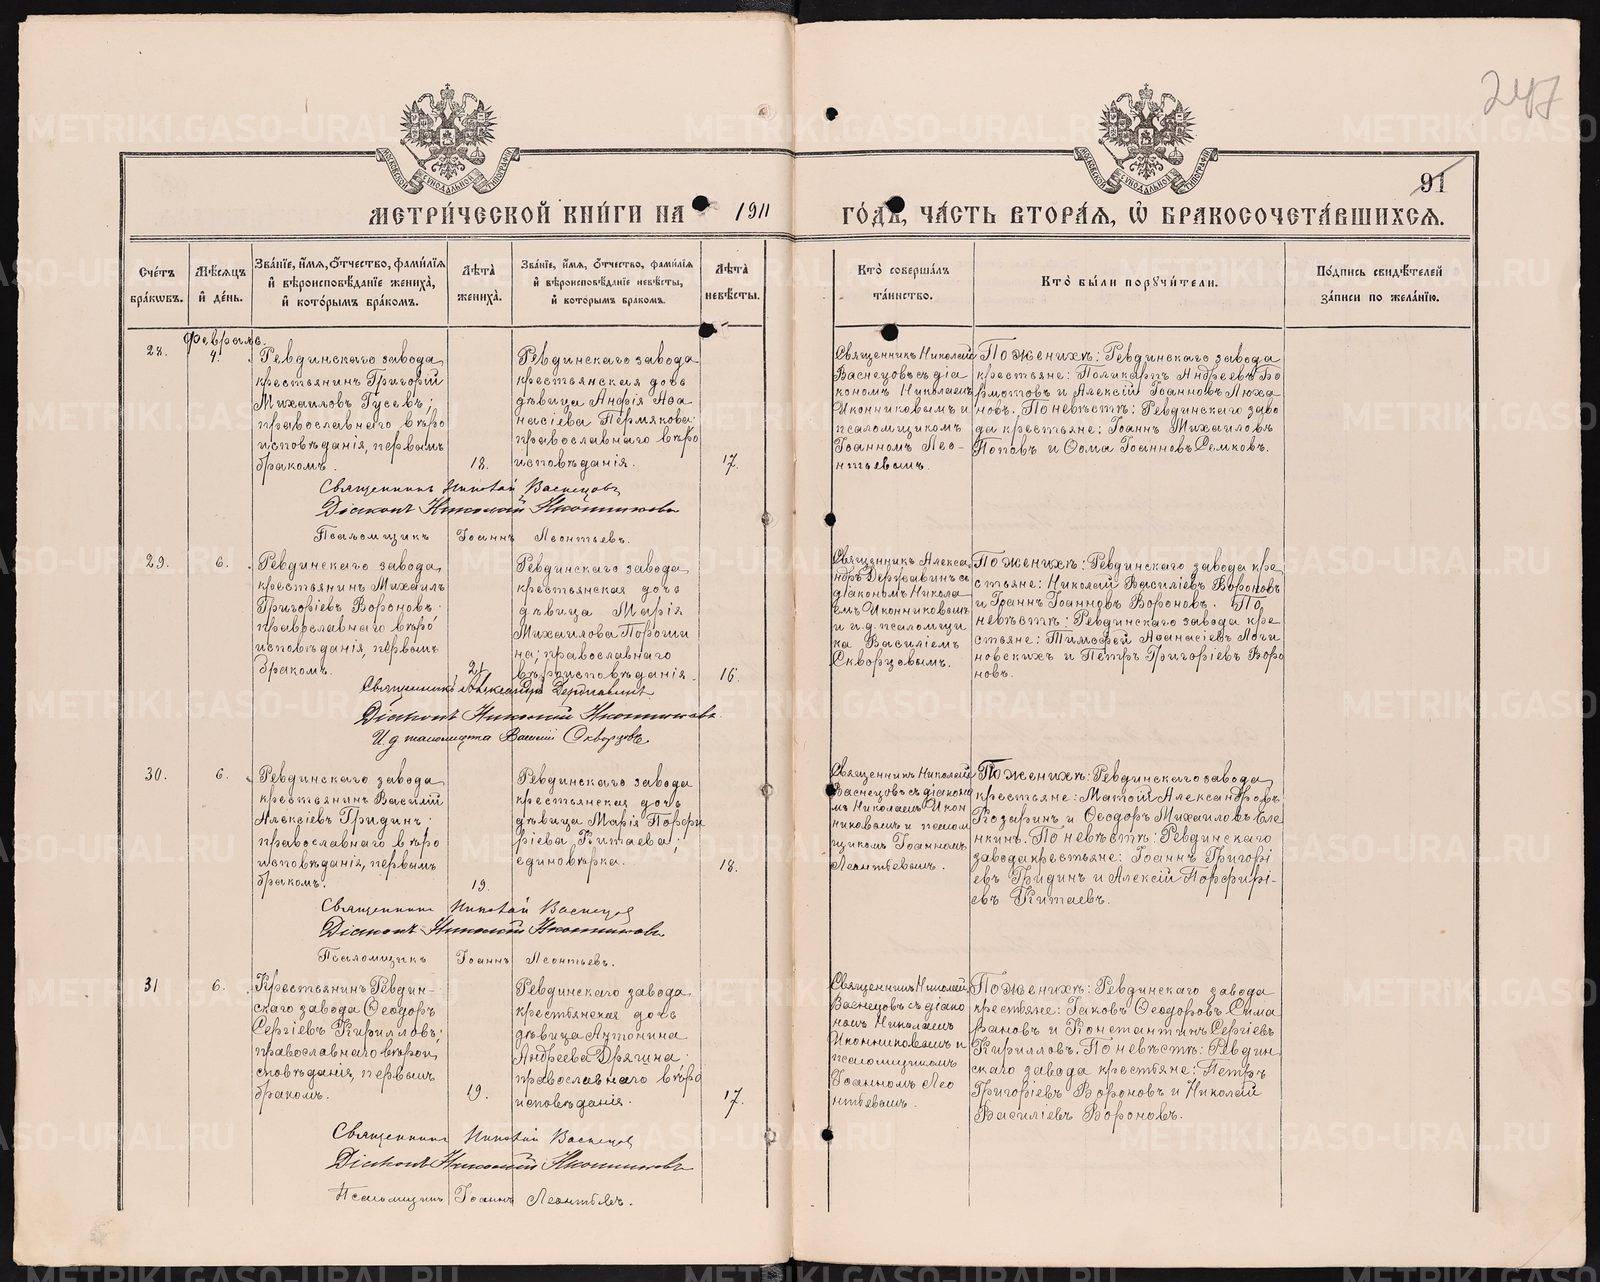 247
91
МОСКОВСКОЙ СѴНОДАЛЬНОЙ ТИПОГРАФІИ
МОСКОВСКОЙ СѴНОДАЛЬНОЙ ТИПОГРАФІИ
МЕТРИ́ЧЕСКОЙ КНИ́ГИ НА 1911 ГО́ДЪ, ЧА́СТЬ ВТОРА́Ѧ, Ѽ БРАКОСОЧЕТА́ВШИХСѦ.
Сче́тъ бра́кѡвъ.
Мѣ́сяцъ и҆ де́нь.
Зва́нїе, и҆́мѧ, ѻ҆́тчество, фами́лїѧ и҆ вѣроисповѣ́данїе жениха̀, и҆ кото́рымъ бра́комъ.
Лѣ́та жениха̀.
Зва́нїе, и҆́мѧ, ѻ҆́тчество, фами́лїѧ и҆ вѣроисповѣ́данїе невѣ́сты, и҆ кото́рымъ бра́комъ.
Лѣ́та невѣ́сты.
Кто̀ соверша́лъ та́инство.
Кто̀ бы́ли порꙋчи́тели.
По́дпись свидѣ́телей за́писи по жела́нїю.
Февраль.
28.
4.
Ревдинскаго завода
крестьянинъ Григорій
Михаиловъ Гусевъ;
православнаго вѣро
исповѣданія, первымъ
бракомъ.
18.
Ревдинскаго завода
крестьянская дочь
дѣвица Анфія Аѳа
насіева Пермякова
православнаго вѣро
исповѣданія.
17.
Священникъ Николай
Васнецовъ съ діа
кономъ Николаемъ
Иконниковымъ и
псаломщикомъ
Іоанномъ Лео-
нтьевымъ.
По женихѣ: Ревдинскаго завода
крестьяне: Поликарпъ Андреевъ Бо
рмотовъ и Алексій Іоанновъ Люха
новъ. По невѣстѣ: Ревдинскаго заво
да крестьяне: Іоаннъ Михаиловъ
Поповъ и Ѳома Іоанновъ Земковъ.
Священникъ Николай Васнецовъ
Діаконъ Николай Иконниковъ
Псаломщикъ Іоаннъ Леонтьевъ.
29.
6.
Ревдинскаго завода
крестьянинъ Михаилъ
Григоріевъ Вороновъ
православнаго вѣро
исповѣданія, первымъ
бракомъ.
21
Ревдинскаго завода
крестьянская дочь
дѣвица Марія
Михаилова Пороши
на; православнаго
вѣроисповѣданія.
16.
Священникъ Алекса
ндръ Державинъ съ
діакономъ Никола
емъ Иконниковымъ
и и.д. псаломщи
ка Василіемъ
Скворцовымъ.
По женихѣ: Ревдинскаго завода кре
стьяне: Николай Василіевъ Вороновъ
и Іоаннъ Іоанновъ Вороновъ. По
невѣстѣ: Ревдинскаго завода кре
стьяне: Тимоѳей Аѳанасіевъ Логи
новскихъ и Петръ Григоріевъ Воро
новъ.
Священникъ Александръ Державинъ
Діаконъ Николай Иконниковъ
И.д псаломщика Василій Скворцовъ
30.
6.
Ревдинскаго завода
крестьянинъ Василій
Алексіевъ Гридинъ
православнаго вѣро
исповѣданія, первымъ
бракомъ.
19.
Ревдинскаго завода
крестьянская дочь
дѣвица Марія Порфи
ріева Китаева;
единовѣрка.
18.
Священникъ Николай
Васнецовъ съ діаконо
мъ Николаемъ Икон
никовымъ и псалом
щикомъ Іоанномъ
Леонтьевымъ.
По женихѣ: Ревдинскаго завода
крестьяне: Матѳій Александровъ
Козаринъ и Ѳеодоръ Михаиловъ Еле
нкинъ. По невѣстѣ: Ревдинскаго
завода крестьяне: Іоаннъ Григорі
евъ Гридинъ и Алексій Порфирі-
евъ Китаевъ.
Священникъ Николай Васнецовъ
Діаконъ Николай Иконниковъ
Псаломщикъ Іоаннъ Леонтьевъ.
31
6.
Крестьянинъ Ревдин-
скаго завода Ѳеодоръ
Сергіевъ Кирилловъ;
православнаго вѣрои
сповѣданія, первымъ
бракомъ.
19.
Ревдинскаго завода
крестьянская дочь
дѣвица Антонина
Андреева Дрягина
православнаго вѣро
исповѣданія.
17.
Священникъ Николай
Васнецовъ съ діако
номъ Николаемъ
Иконниковымъ и
псаломщикомъ
Іоанномъ Лео
нтьевымъ.
По женихѣ: Ревдинскаго завода
крестьяне: Іаковъ Ѳеодоровъ Сила
фановъ и Константинъ Сергіевъ
Кирилловъ. По невѣстѣ: Ревдин
скаго завода крестьяне: Петръ
Григоріевъ Вороновъ и Николай
Василіевъ Вороновъ.
Священникъ Николай Васнецовъ
Діаконъ Николай Иконниковъ
Псаломщикъ Іоаннъ Леонтьевъ.
METRIKI.GASO-URAL.RU